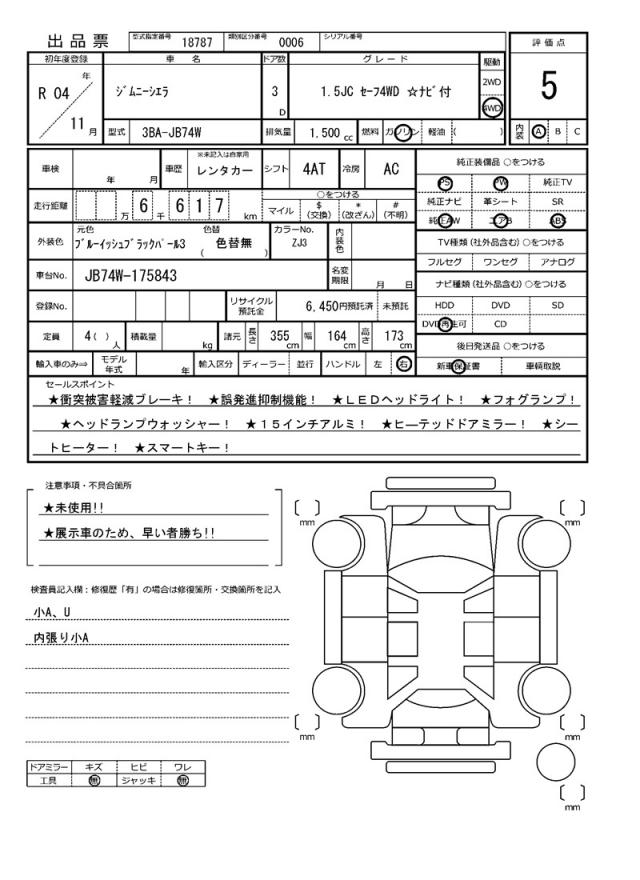 出品票 型式指定番号 18787 類別区分番号 0006 シリアル番号
評価点
初年度登録 車名 ドア数 グレード 駆動
R 04 年 ジムニーシエラ 3 D 1.5JC セーフ4WD ☆ナビ付 2WD 4WD
5
11 月 型式 3BA-JB74W 排気量 1.500 cc 燃料 ガソリン 軽油 ( )
内装 A B C
車検 年 月 車歴 ※未記入は自家用 レンタカー シフト 4AT 冷房 AC
純正装備品 ○をつける
PS PW 純正TV
走行距離 万 6 千 6 1 7 km
○をつける
マイル $ (交換) * (改ざん) # (不明)
純正ナビ 革シート SR
純正AW エアB ABS
外装色 元色 ブルーイッシュブラックパール3 色替 色替無 ( ) カラーNo. ZJ3 内装色
TV種類 (社外品含む) ○をつける
フルセグ ワンセグ アナログ
車台No. JB74W-175843 名変期限 月 日
ナビ種類 (社外品含む) ○をつける
登録No. リサイクル預託金 6,450円預託済 未預託
HDD DVD SD
DVD再生可 CD
定員 4 ( ) 人 積載量 kg 諸元 長さ 355 cm 幅 164 cm 高さ 173 cm
後日発送品 ○をつける
輸入車のみ⇒ モデル年式 年 輸入区分 ディーラー 並行 ハンドル 左 右
新車保証書 車輌取説
セールスポイント
★衝突被害軽減ブレーキ! ★誤発進抑制機能! ★LEDヘッドライト! ★フォグランプ!
★ヘッドランプウォッシャー! ★15インチアルミ! ★ヒーテッドドアミラー! ★シー
トヒーター! ★スマートキー!
注意事項・不具合箇所
★未使用!!
★展示車のため、早い者勝ち!!
検査員記入欄:修復歴「有」の場合は修復箇所・交換箇所を記入
小A、U
内張り小A
ドアミラー キズ ヒビ ワレ
工具 無 ジャッキ 無
[ ] mm
[ ] mm
[ ] mm
[ ] mm
[ ] mm